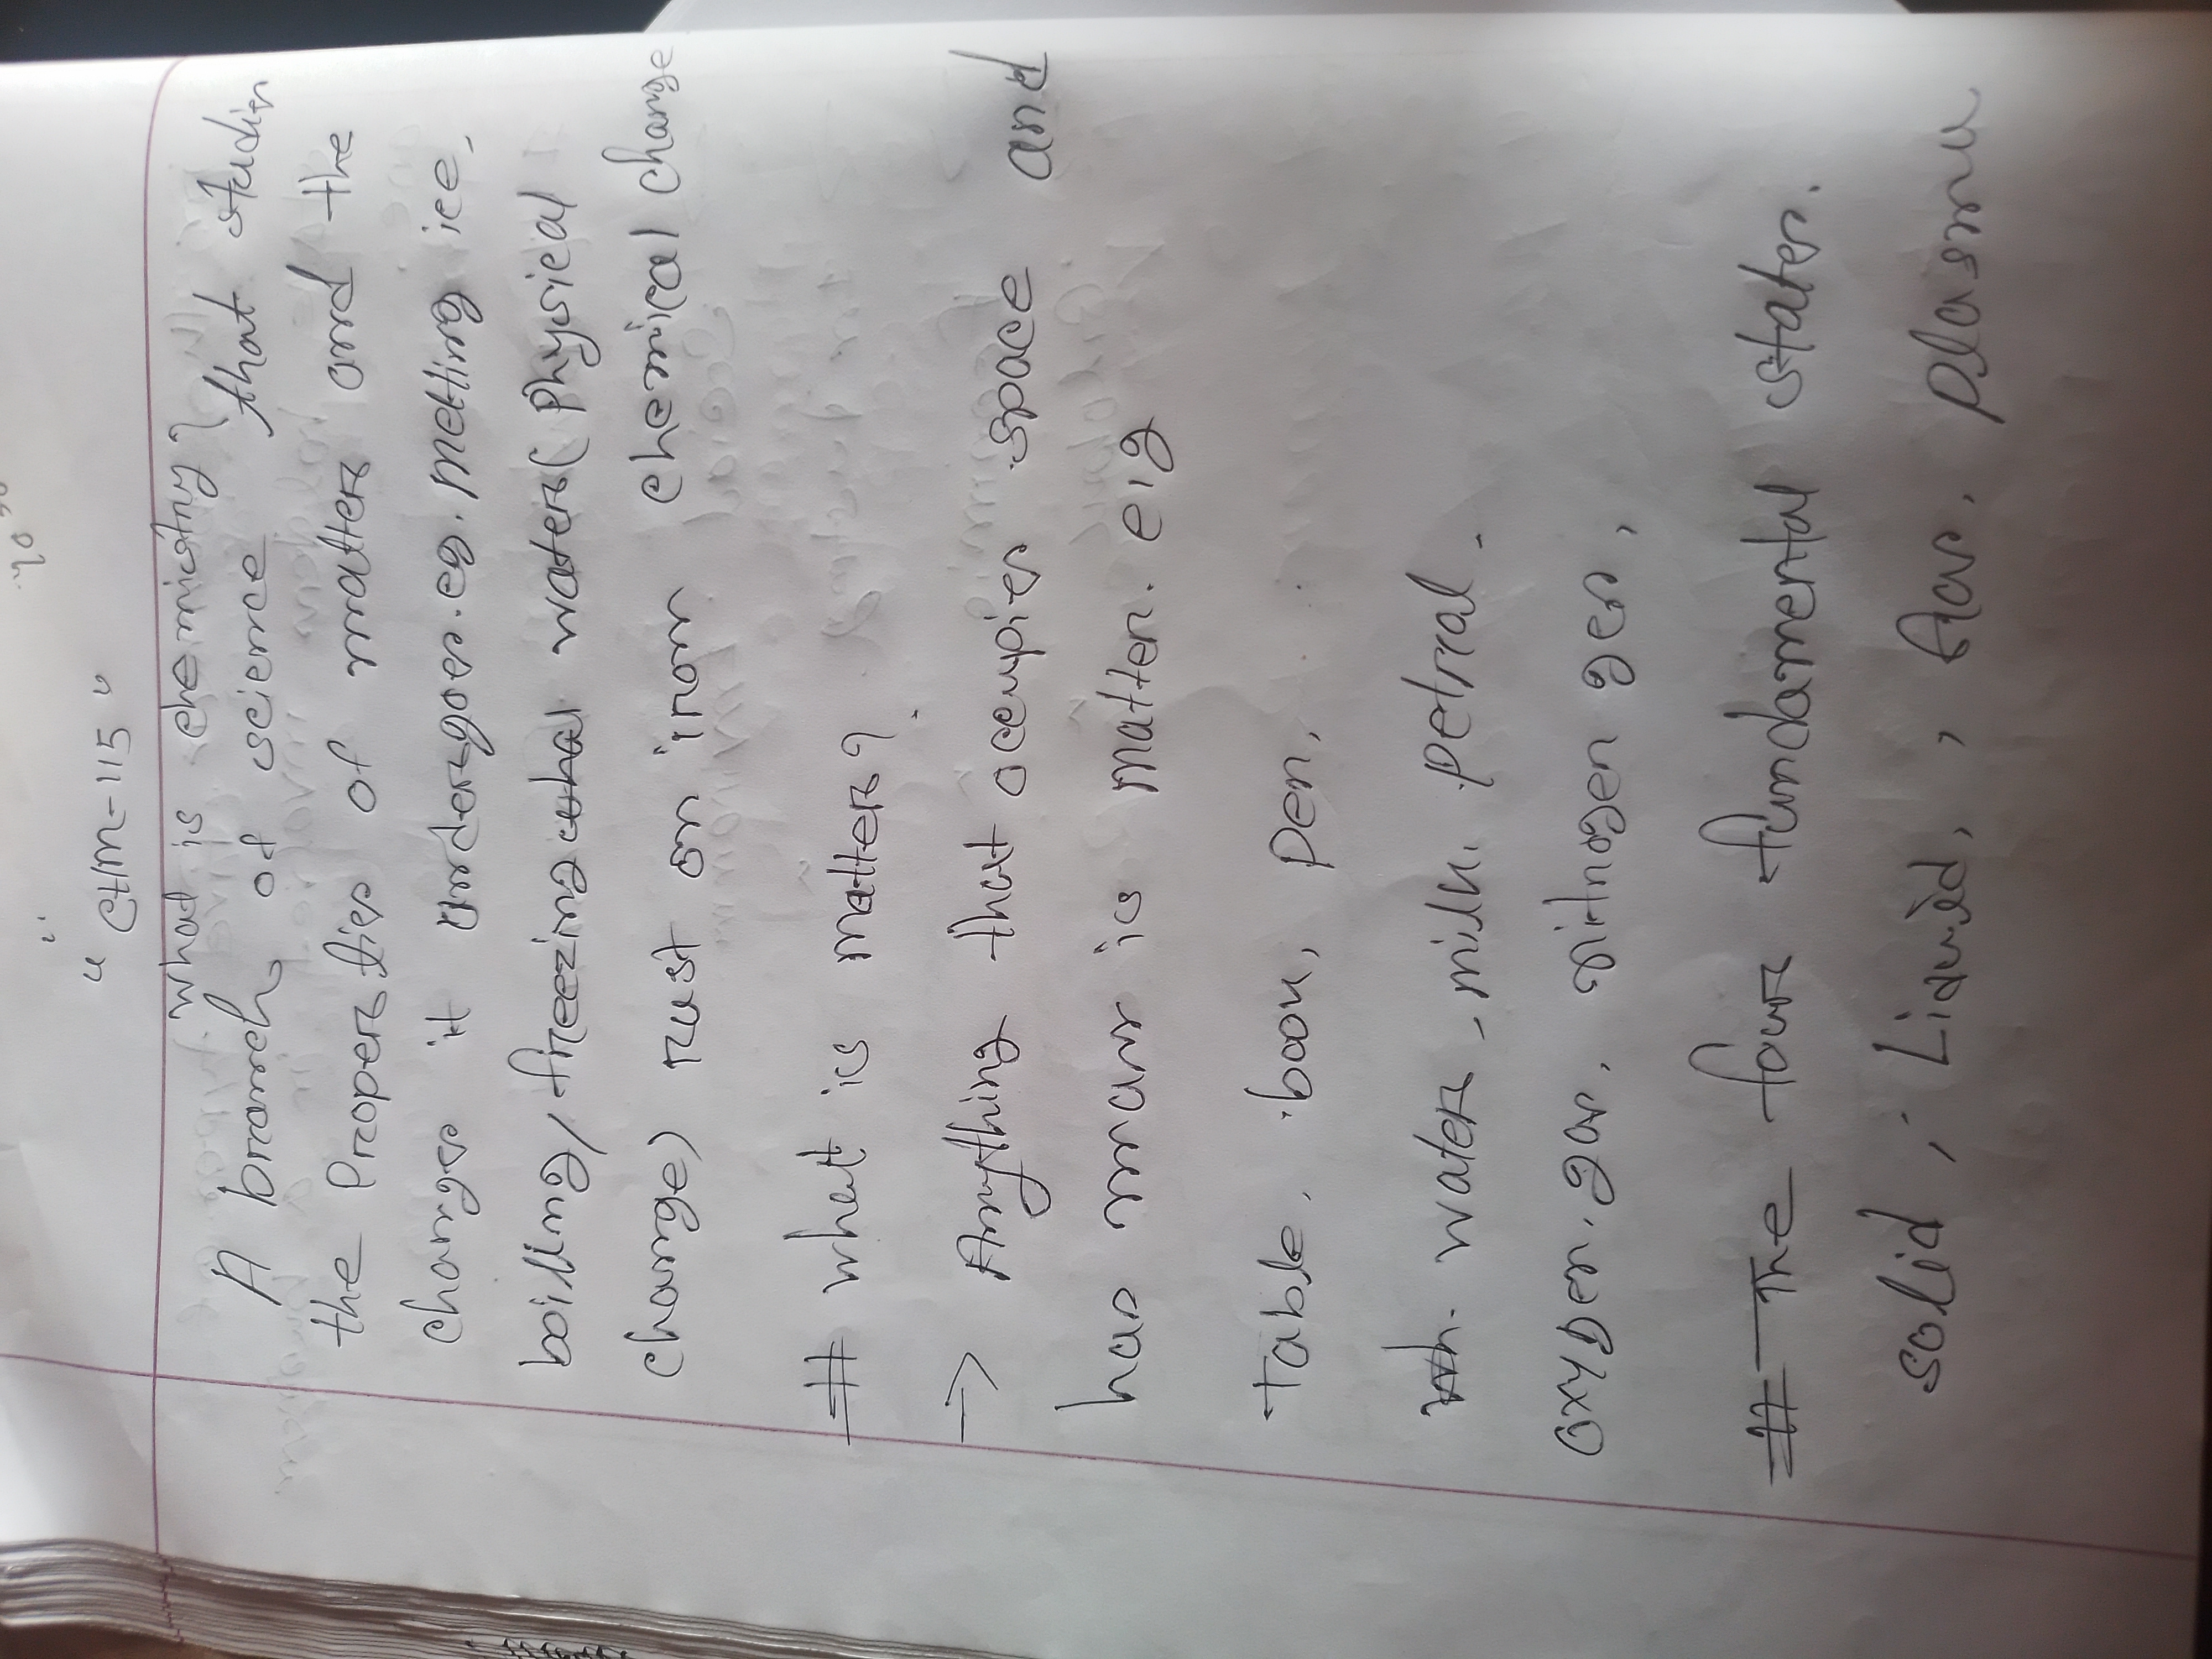 "CHM-115"
What is chemistry?
A branch of science that studies
the Properties of matter and the
changes it undergoes. eg. melting ice,
boiling, freezing what water (physical
change) rust on iron chemical change
# What is matter?
→ Anything that occupies space and
has mass is matter. e.g
Table, book, pen,
Wh. water, milk, petrol.
oxygen. gas, nitrogen gas,
# The four fundamental states.
solid, Liquid, , Gas, plasma